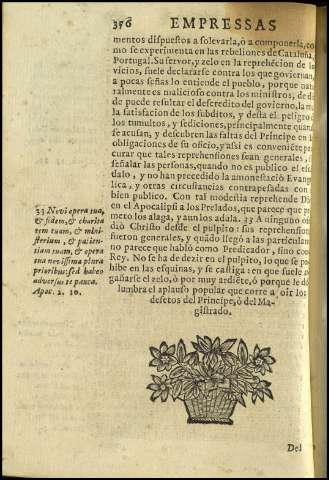 376 EMPRESSAS
mentos dispuestos a solevarla, ò a componerla, co
mo se experimenta en las rebeliones de Cataluña,
Portugal. Su fervor, y zelo en la reprehẽcion de l
vicios, suele declararse contra los que goviernan,
a pocas señas lo entiende el pueblo, porque natu
ralmente es malicioso contra los ministros, de d
de puede resultar el descredito del govierno, la m
la satisfacion de los subditos, y desta el peligro
los tumultos, y sediciones, principalmente quand
se acusan, y descubren las faltas del Principe en l
obligaciones de su oficio, y assi es conveniẽte pro
curar que tales reprehensiones sean generales, si
señalar las personas, quando no es publico el esc
dalo, y no han precedido la amonestaciõ Evang
lica, y otras circũstancias contrapesadas con
bien publico. Con tal modestia reprehende Di
en el Apocalipsi a los Prelados, que parece que p
mero los alaga, y aun los adula. 33 A ninguno of
diò Christo desde el pulpito: sus reprehension
fueron generales, y quãdo llegò a las particulare
no parece que hablò como Predicador, sino com
Rey. No se ha de dezir en el pulpito, lo que se p
hibe en las esquinas, y se castiga: en que suele e
gañarse el zelo, ò por muy ardiẽte, ò porque le d
lumbra el aplauso popular que corre a oir los
defetos del Principe, ò del Ma-
gistrado.
33 Novi opera tua,
& fidem, & charita
tem tuam, & mini-
sterium, & patien-
tiam tuam, & opera
tua novissima plura
prioribus: sed habeo
adversus te pauca.
Apoc. 2. 20.
Del